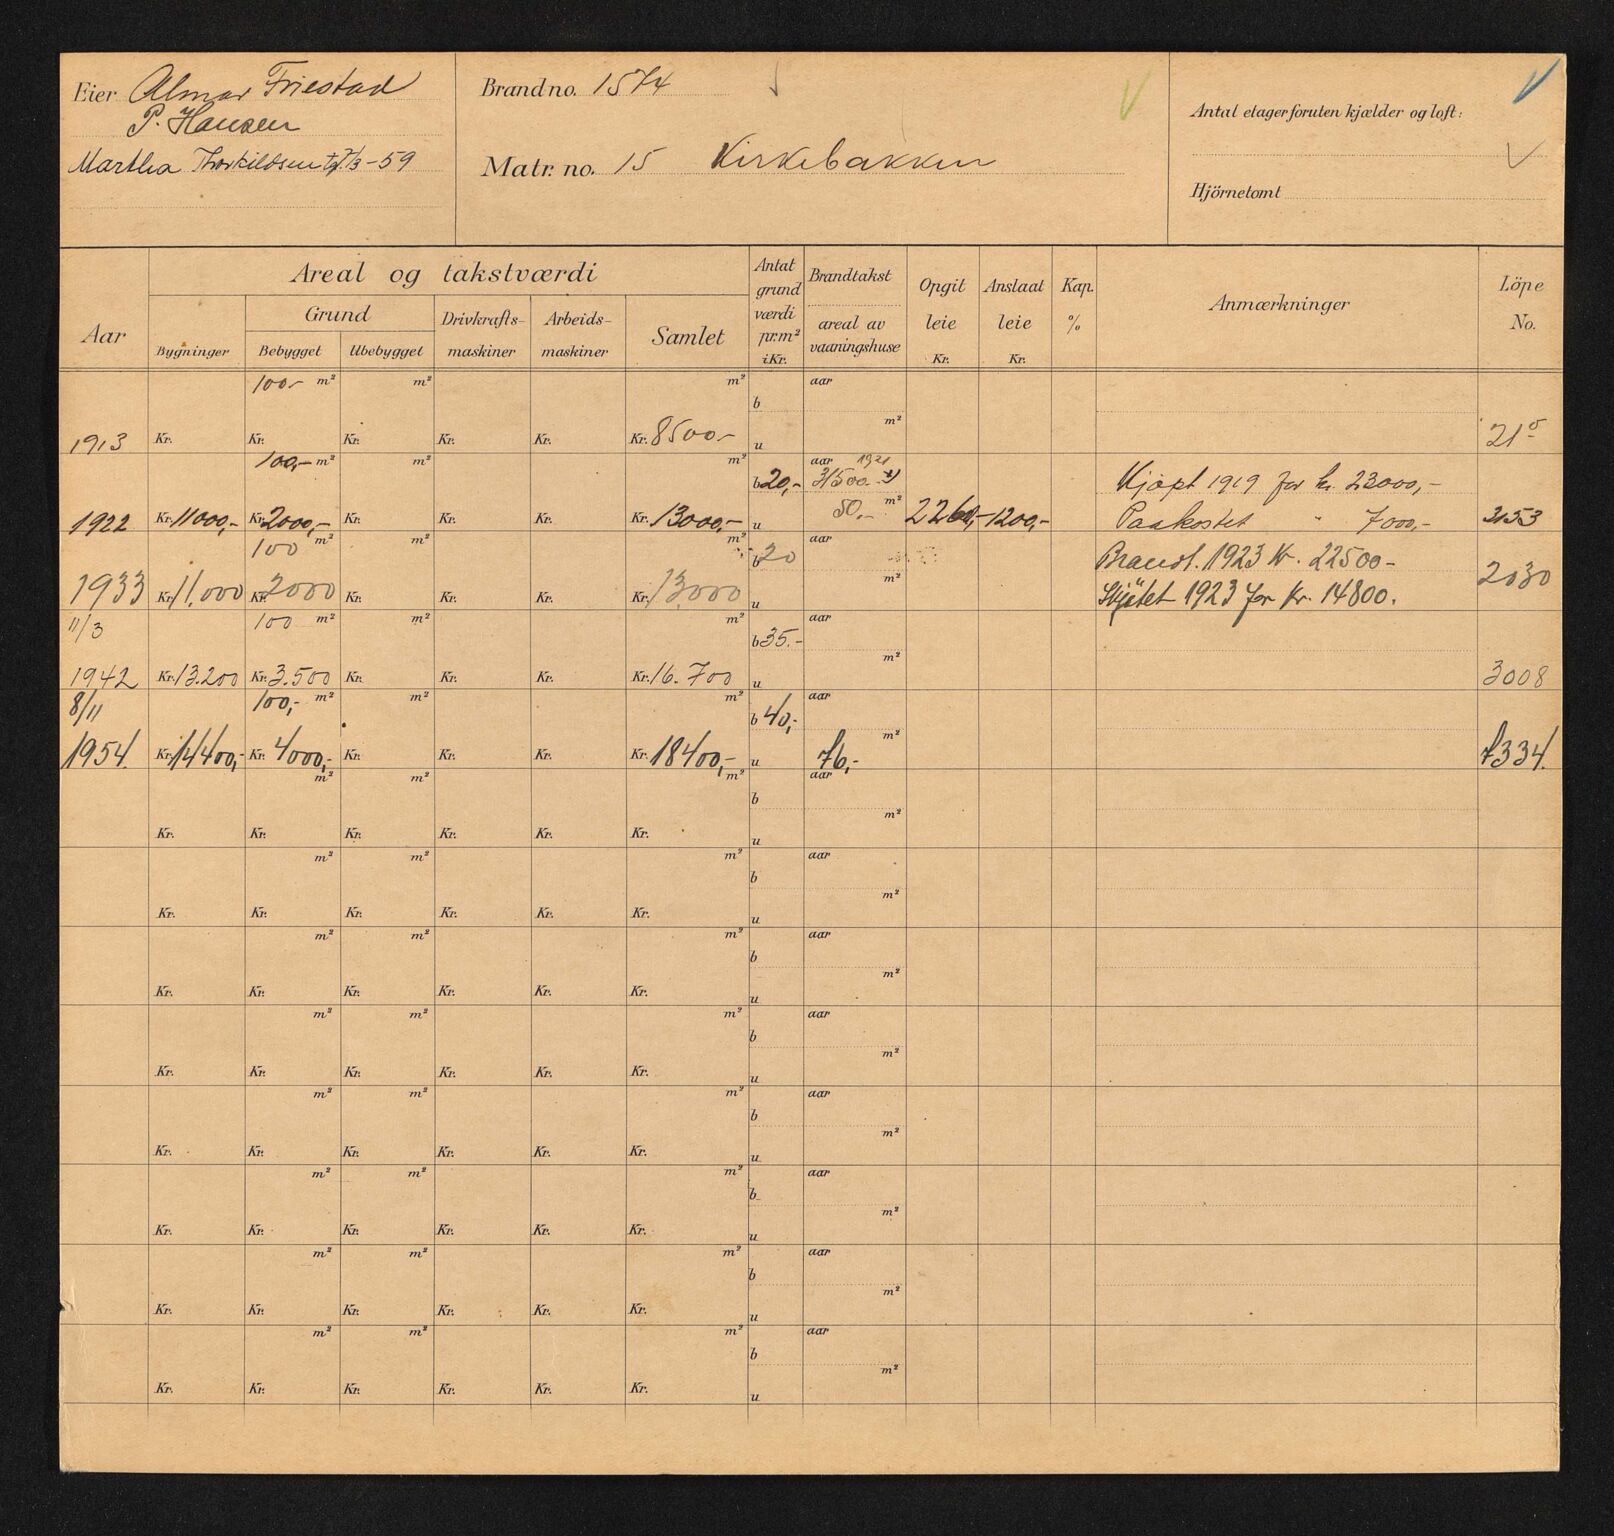 Eier Almar Friestad
P. Hansen
Martha Thorkildsen tgl. 7/3-59
Brandno. 1574
Matr. no. 15 Kirkebakken
Antal etager foruten kjælder og loft:
Hjörnetomt
Aar
Areal og takstværdi
Bygninger
Grund
Bebygget
Ubebygget
Drivkrafts-
maskiner
Arbeids-
maskiner
Samlet
Antat
grund
værdi
pr.m²
i Kr.
Brandtakst
areal av
vaaningshuse
Opgit
leie
Kr.
Anslaat
leie
Kr.
Kap.
%
Anmærkninger
Löpe
No.
100.- m² m² m² b aar
1913 Kr. Kr. Kr. Kr. Kr. Kr. 8500.- u m² 21⁵
100,- m² m² m² b 20,- aar 1921 31500 Kjøpt 1919 for kr. 23000,-
1922 Kr. 11000,- Kr. 2000,- Kr. Kr. Kr. Kr. 13000,- u 50,- m² 2260,- 1200,- Paakostet " 7000,- 3153
100 m² m² m² b 20 aar Brandt. 1923 Kr. 22500-
1933 Kr. 11.000 Kr. 2000 Kr. Kr. Kr. Kr. 13.000 u m² Skjøtet 1923 for Kr. 14800. 2030
11/3 100 m² m² m² b 35.- aar
1942 Kr. 13.200 Kr. 3.500 Kr. Kr. Kr. Kr. 16.700 u m² 3008
8/11 100,- m² m² m² b 40,- aar
1954. Kr. 14400,- Kr. 4000,- Kr. Kr. Kr. Kr. 18400,- u 76,- m² 7334.
m² m² m² b aar
Kr. Kr. Kr. Kr. Kr. Kr. u m²
m² m² m² b aar
Kr. Kr. Kr. Kr. Kr. Kr. u m²
m² m² m² b aar
Kr. Kr. Kr. Kr. Kr. Kr. u m²
m² m² m² b aar
Kr. Kr. Kr. Kr. Kr. Kr. u m²
m² m² m² b aar
Kr. Kr. Kr. Kr. Kr. Kr. u m²
m² m² m² b aar
Kr. Kr. Kr. Kr. Kr. Kr. u m²
m² m² m² b aar
Kr. Kr. Kr. Kr. Kr. Kr. u m²
m² m² m² b aar
Kr. Kr. Kr. Kr. Kr. Kr. u m²